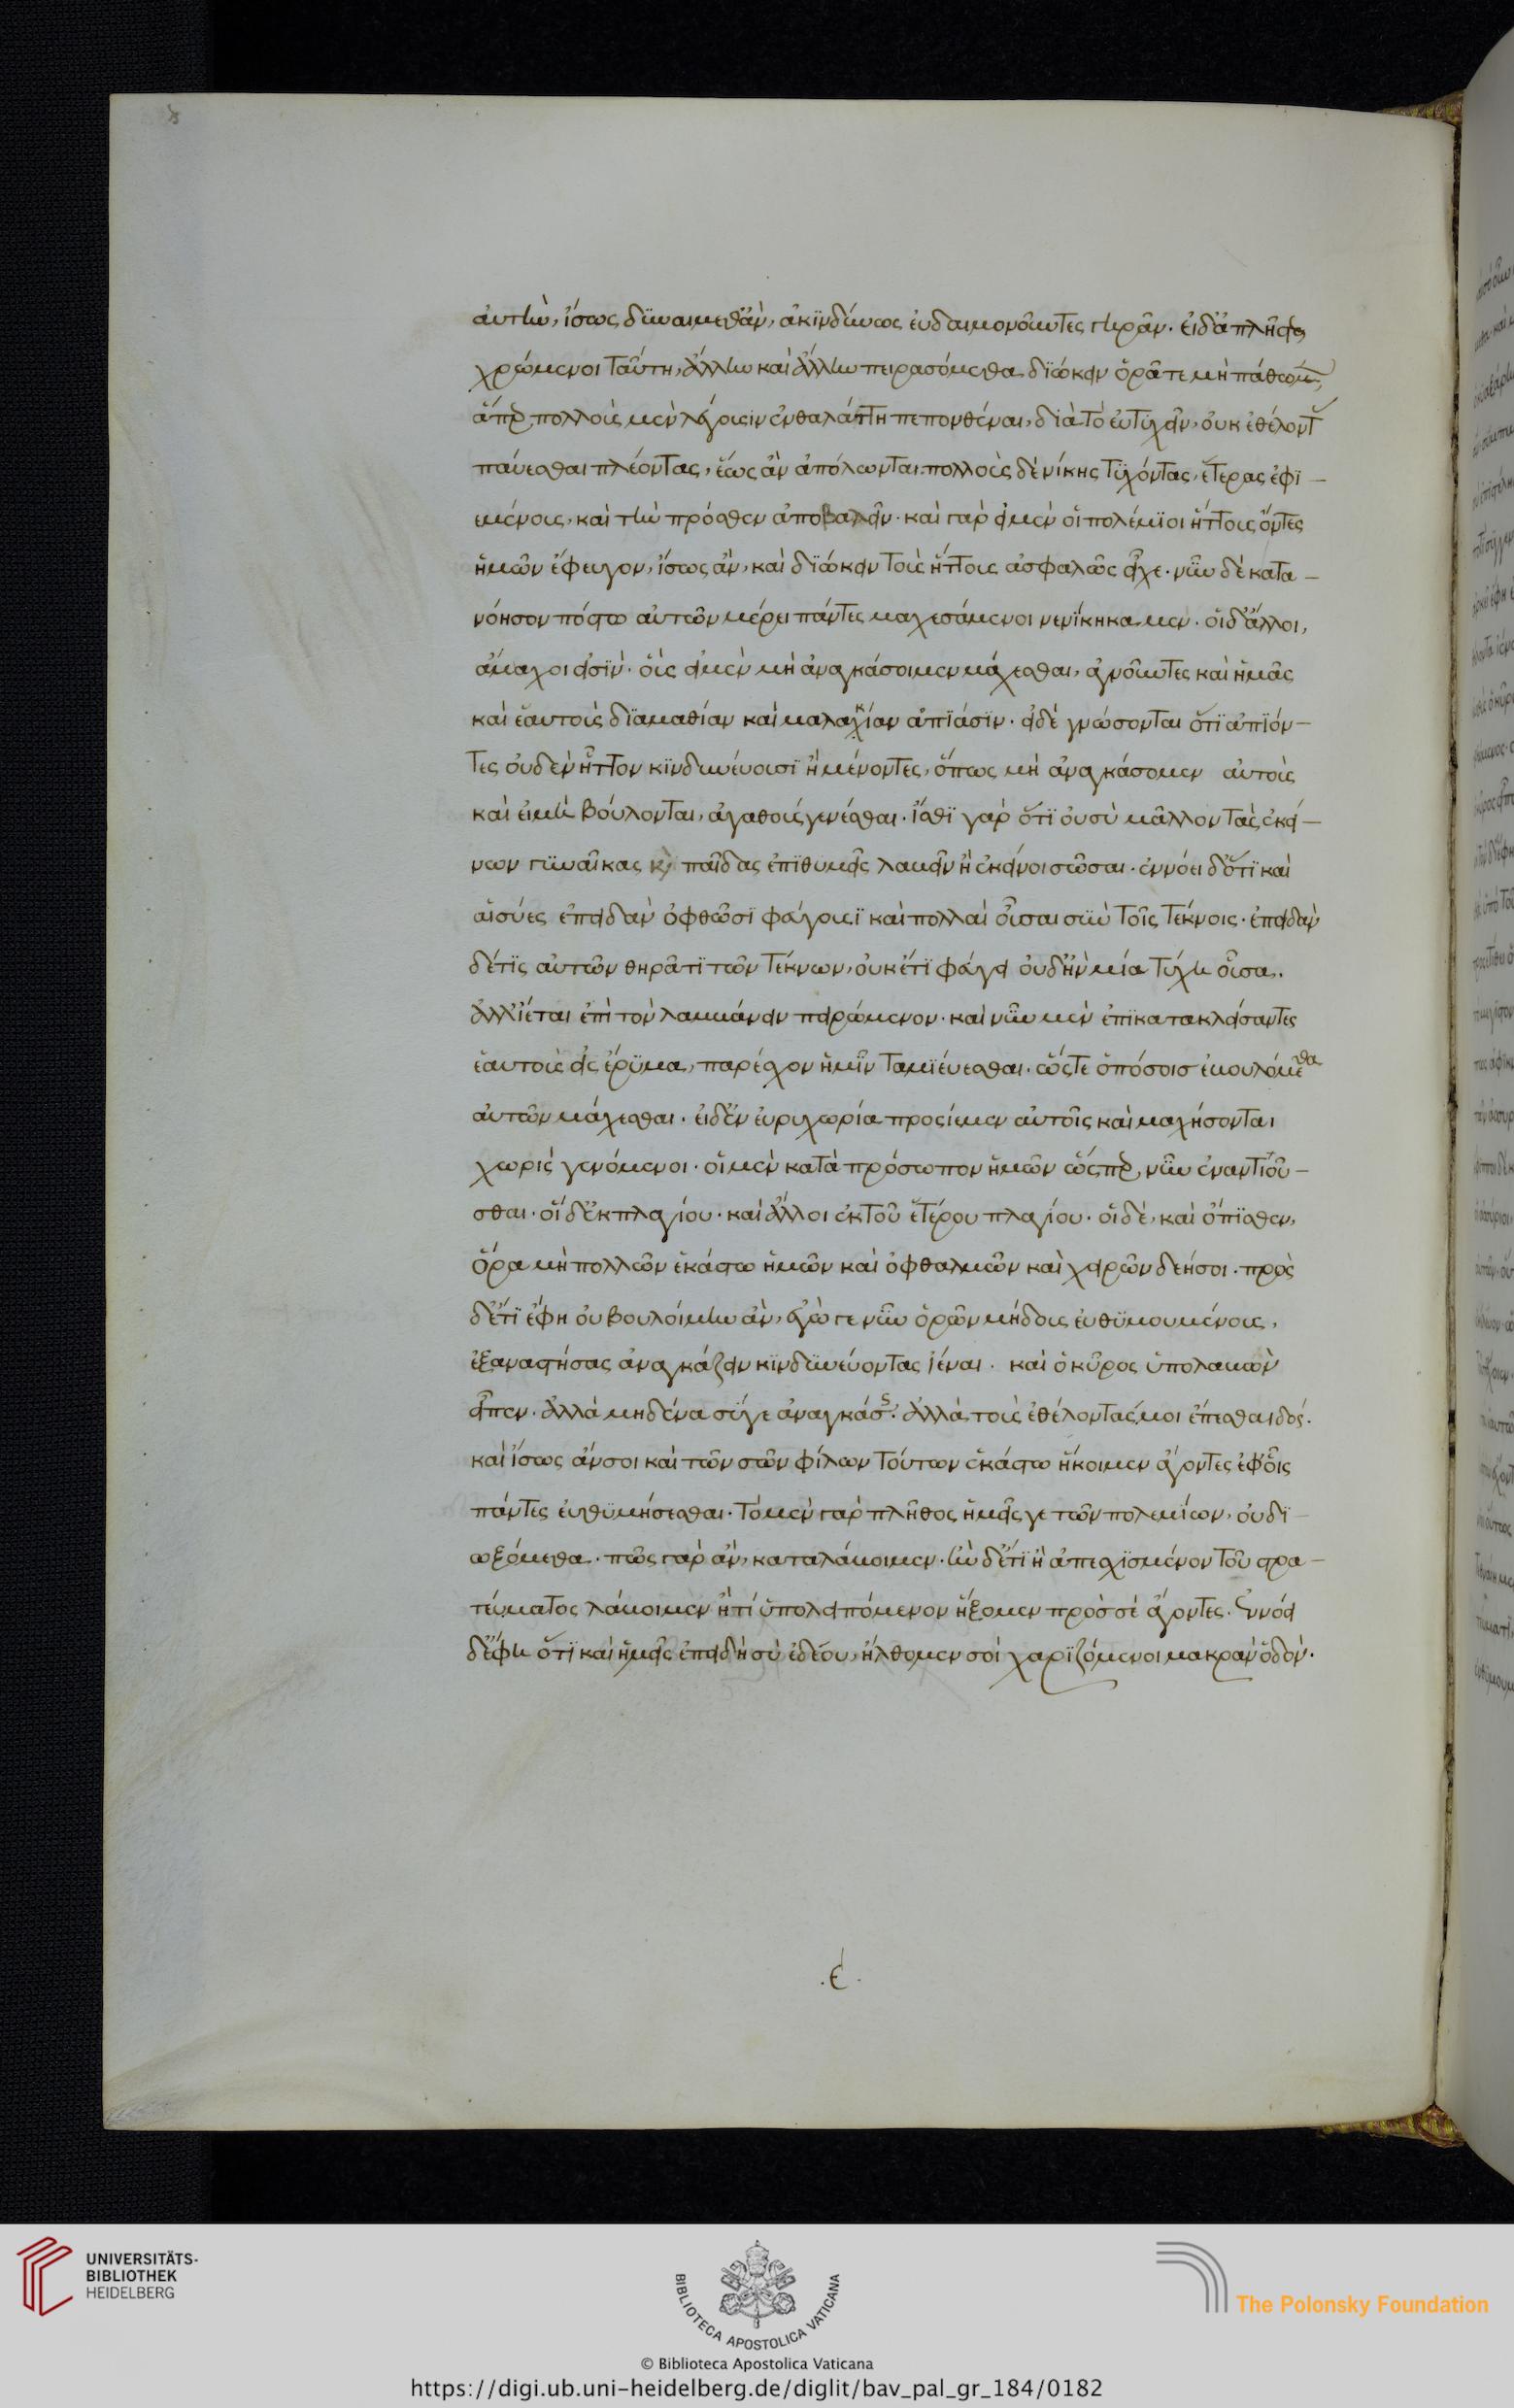 αὐτὴν, ἴσως δϋναιμεθ᾽ἂν, ἀκϊνδύνως ἐυδαιμονοῦντες γηρᾶν. ἐιδ᾽ἀπλήστως
χρώμενοι ταύτη, ἄλλην καὶ ἄλλην πειρασόμεθα διώκειν ὁρᾶτε μὴ πάθωμεν,
ἅπερ πολλοὺς μὲν λέγουσιν ἐνθαλάττη πεπονθέναι, διὰ τὸ ἐυτϋχεῖν, ὀυκ ἐθέλοντας
πάυεσθαι πλέοντας, ἕως ἂν ἀπόλωνται. πολλοὺς δὲ νίκης τϋχόντας, ἑτέρας ἐφϊ-
εμένους, καὶ τὴν πρόσθεν ἀποβαλεῖν. καὶ γὰρ ἐιμὲν ὁι πολέμϊοι ἥττους ὄντες
ἡμῶν ἔφευγον, ἴσως ἂν, καὶ διώκειν τοὺς ἥττους ἀσφαλῶς εἶχε. νῦν δὲ κατα-
νόησον πόστω αὐτῶν μέρει πάντες μαχεσάμενοι νενϊκήκαμεν. ὁι δ᾽ἄλλοι,
ἄμαχοι ἐισϊν. οὓς ἐιμὲν μὴ ἀναγκάσοιμεν μάχεσθαι, ἀγνοοῦντες καὶ ἡμᾶς
καὶ ἑαυτοὺς δϊαμαθίαν καὶ μαλακίαν ἀπϊάσϊν. ἐιδὲ γνώσονται ὅτϊ ἀπϊόν-
τες ὀυδὲν ἧττον κϊνδυνέυουσϊ ἢ μένοντες, ὅπως μὴ ἀναγκάσομεν αὐτοὺς
καὶ ἐιμὴ βούλονται, ἀγαθοὺς γενέσθαι. ἴσθϊ γὰρ ὅτϊ ὀυσὺ μᾶλλον τὰς ἐκεί-
νων γϋναῖκας καὶ παῖδας ἐπϊθυμεῖς λαβεῖν ἢ ἐκεῖνοι σῶσαι. ἐννόει δ᾽ὅτϊ καὶ
ἁι σύες ἐπειδὰν ὀφθῶσϊ φέυγουσϊ καὶ πολλαὶ οὖσαι σϋν τοῖς τέκνοις. ἐπειδὰν
δέ τϊς αὐτῶν θηρᾶ τϊ τῶν τέκνων, ὀυκέτϊ φέυγει ὀυδ᾽ἢν μία τύχη οὖσα.
ἀλλ᾽ἵεται ἐπὶ τὸν λαμβάνειν πειρώμενον. καὶ νῦν μὲν ἐπϊκατακλείσαντες
ἑαυτοὺς εἰς ἔρϋμα, παρέσχον ἡμῖν ταμϊέυεσθαι. ὥςτε ὁπόσοις ἐβουλόμεθα
αὐτῶν μάχεσθαι. ἐιδ᾽ἐν ἐυρυχωρία προςίεμεν αὐτοῖς καὶ μαχήσονται
χωρὶς γενόμενοι. ὁι μὲν κατὰ πρόσωπον ἡμῶν ὥςπερ νῦν ἐναντϊοῦ-
σθαι. ὁι δ᾽ἐκπλαγίου. καὶ ἄλλοι ἐκ τοῦ ἑτέρου πλαγίου. ὁι δὲ, καὶ ὄπϊσθεν,
ὅρα μὴ πολλῶν ἑκάστω ἡμῶν καὶ ὀφθαλμῶν καὶ χειρῶν δεήσοι. πρὸς
δ᾽ἔτϊ ἔφη ὀυ βουλοίμην ἂν, ἐγώ γε νῦν ὁρῶν μήδους ἐυθϋμουμένους,
ἐξαναστήσας ἀναγκάζειν κϊνδϋνεύοντας ἰέναι. καὶ ὁ κῦρος ὑπολαβὼν
εἶπεν. ἀλλὰ μηδένα σϋ γε ἀναγκάσης. ἀλλὰ τοὺς ἐθέλοντάς μοι ἕπεσθαι δός.
καὶ ἴσως ἄν σοι καὶ τῶν σῶν φίλων τούτων ἑκάστω ἥκοιμεν ἄγοντες ἐφ᾽οἷς
πάντες ἐυθϋμήσεσθαι. τὸ μὲν γὰρ πλῆθος ἡμεῖς γε τῶν πολεμίων, ὀυδϊ-
ωξόμεθα. πῶς γὰρ ἂν, καταλάβοιμεν. ἢν δ᾽ἔτϊ ἢ ἀπεσχϊσμένον τοῦ στρα-
τεύματος λάβοιμεν ἤ τϊ ὑπολειπόμενον ἥξομεν πρὸς σὲ ἄγοντες. ἐννόει
δ᾽ἔφη ὅτϊ καὶ ἡμεῖς ἐπειδὴ σὺ ἐδέου, ἤλθομεν σοὶ χαρϊζόμενοι μακρὰν ὁδόν.
.ε.
UNIVERSITÄTS-
BIBLIOTHEK
HEIDELBERG
BIBLIOTECA APOSTOLICA VATICANA
The Polonsky Foundation
© Biblioteca Apostolica Vaticana
https://digi.ub.uni-heidelberg.de/diglit/bav_pal_gr_184/0182